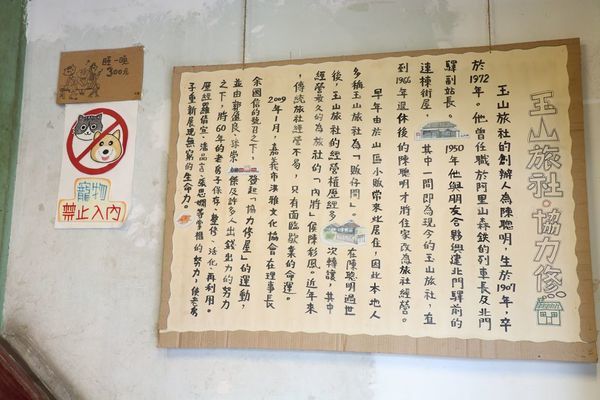 玉山旅社‧協力修
玉山旅社的創辦人為陳聰明,生於1907年,卒
於1972年。他曾任職於阿里山森鉄的列車長及北門
驛副站長。1950年他與朋友合夥興建北門驛前的
連棟街屋,其中一間即為現今的玉山旅社,直
到1966年退休後的陳聰明才將住家改為旅社經營。
早年由於山區小販帶來此居住,因此本地人
多稱玉山旅社為「販仔間」。在陳聰明過世
後,玉山旅社的經營權歷經多次轉讓,其中
經營最久的為旅社的「內將」侯陳彩鳳。近年來
,傳統旅社經營不易,只有面臨歇業的命運。
2009年1月,嘉義市洪雅文化協會在理事長
余國信的號召之下,發起「協力修屋」的運動,
並由郭盈良、徐崇傑及許多人出錢出力的努力
之下,將60年的老房子保存、整修、活化、再利用。
歷經羅信宜、潘品言、張思嫻等掌櫃的努力,使老房
子重新展現無窮的生命力。
睡一晚
300元
寵物
禁止入內